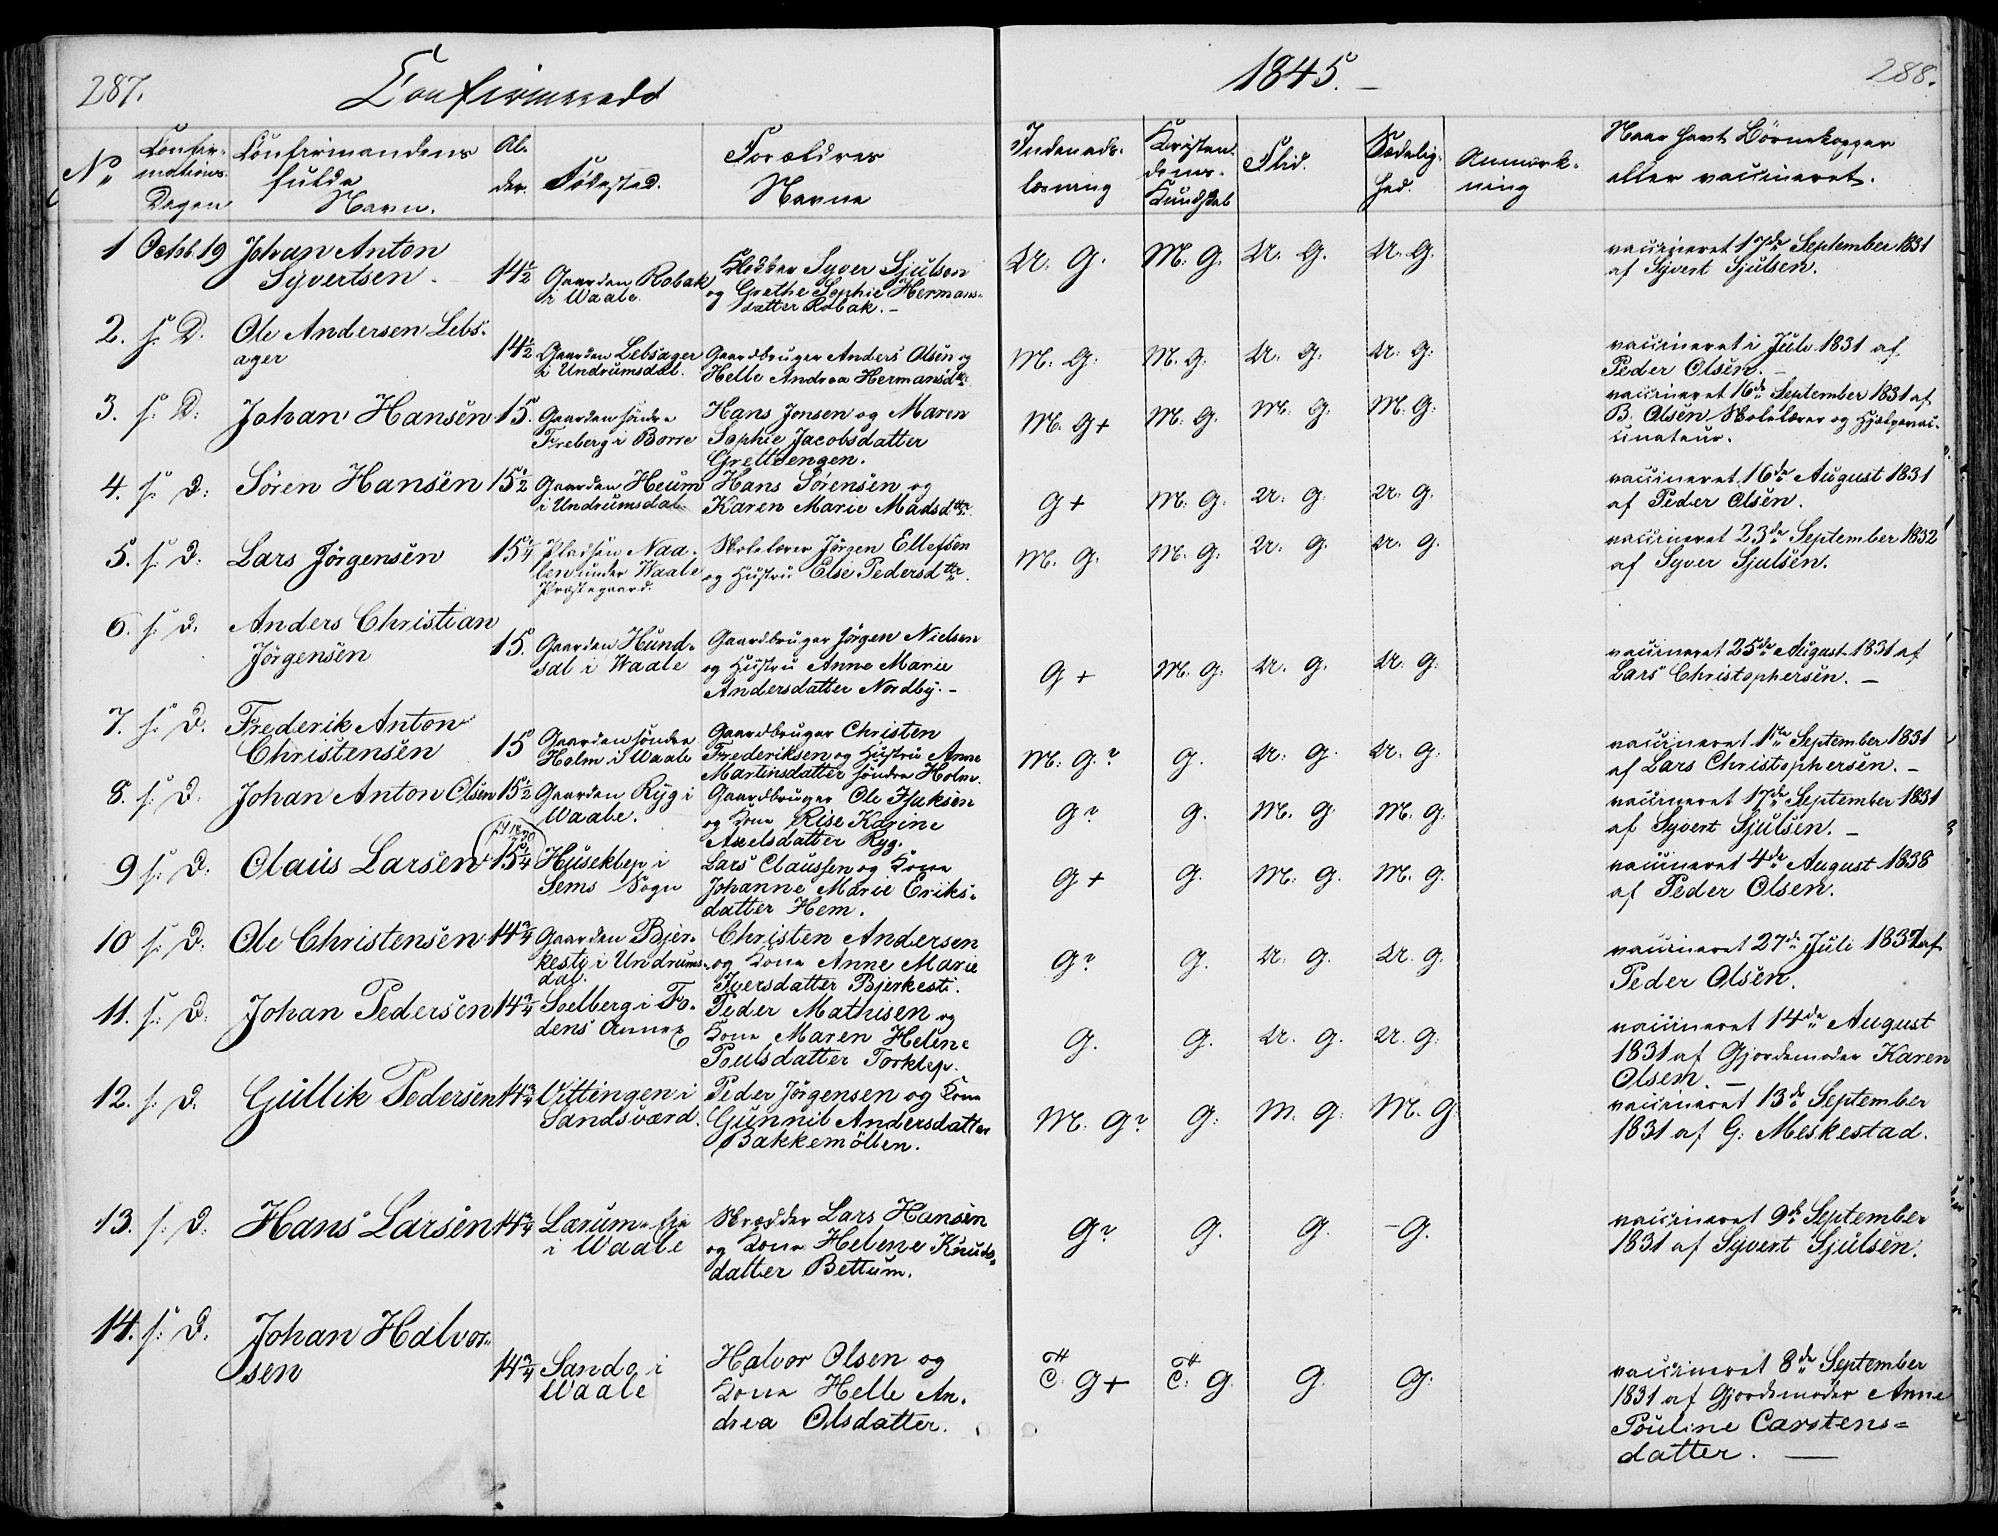 287.
Confirmerede
1845.
288.
No
Confir-
mations-
Dagen
Confirmandens
fulde
Navn.
Al-
der.
Födested.
Forældres
Navne
Indenads-
læsning
Kristen-
doms-
Kundskab
Flid.
Sædelig-
hed.
Anmærk-
ning
Naar havt Börnekopper
eller vaccineret.
1 Octob. 19 Johan Anton
Syvertsen
14½
Gaarden Robak
i Waale.
Klokker Syver Sjulsen
og Grethe Sophie Hermans-
datter Robak. -
U. G. M. G. U. G. U. G.
vaccineret 17de September 1831
af Syvert Sjulsen.
2. s. D. Ole Andersen Lebs-
ager
14½ Gaarden Lebsager
i Undrumsdal.
Gaardbruger Anders Olsen og
Helle Andrea Hermansdtr
M. G. M. G. U. G. U. G.
vaccineret i Juli 1831 af
Peder Olsen. -
3. s. D. Johan Hansen 15. Gaarden söndre
Freberg i Borre
Hans Jonsen og Maren
Sophie Jacobsdatter
Grettéengen.
M. G+ M. G. M. G. M. G.
vaccineret 16de September 1831 af
B. Olsen Skolelærer og Hjælpevac-
cinateur.
4. s. D. Sören Hansen 15½ Gaarden Heum
i Undrumsdal
Hans Sörensen og
Karen Marie Madsdtr
G+ M. G. U. G. U. G.
vaccineret 16de August 1831
af Peder Olsen.
5. s. D. Lars Jörgensen 15¼ Pladsen Naa-
len under Waale
Præstegaard.
Skolelærer Jörgen Ellefsen
og Hustru Else Pedersdtr
M. G. M. G. U. G. U. G.
vaccineret 23de September 1832
af Syver Sjulsen.
6. s. D. Anders Christian
Jörgensen
15. Gaarden Hund-
sal i Waale
Gaardbruger Jörgen Nielsen
og Hustru Anne Marie
Andersdatter Nordby. -
G + M. G. U. G. U. G.
vaccineret 25de August 1831 af
Lars Christophersen. -
7. s. D. Frederik Anton
Christensen
15 Gaarden söndre
Holm i Waale
Gaardbruger Christen
Frederiksen og Hustru Anne
Martinsdatter söndre Holm.
M. G.? G. U. G. U. G.
vaccineret 1ste September 1831
af Lars Christophersen. -
8. s. D. Johan Anton Olsen 15½ Gaarden Ryg i
Waale.
Gaardbruger Ole Isaksen
og Kone Rise Karine
Axelsdatter Ryg.
G? G. M. G. M. G.
vaccineret 17de September 1831
af Syvert Sjulsen. -
9 s. D. Olaus Larsen 15¼ Huseklep i
Sems Sogn
Lars Claussen og Kone
Johanne Marie Eriks-
datter Hem.
G + G. M. G. M. G.
vaccineret 4de August 1838
af Peder Olsen.
10 s. D. Ole Christensen 14¾ Gaarden Bjer-
kesty i Undrums-
dal.
Christen Andersen
og Kone Anne Marie
Iversdatter Bjerkesti.
G? G. U. G. U. G.
vaccineret 27de Juli 1837 af
Peder Olsen.
11. s. D. Johan Pedersen 14¾ Solberg i Fo-
dens Annex
Peder Mathisen og
Kone Maren Helene
Poulsdatter Torklep.
G. G. U. G. U. G.
vaccineret 14de August
1831 af Gjordemoder Karen
Olsen. -
12. s. D. Gullik Pedersen 14¾ Vittingen i
Sandsværd.
Peder Jörgensen og Kone
Gunnil Andersdatter
Bakkemöllen.
M. G? G. M. G. M. G.
vaccineret 13de September
1831 af G. Meskestad.
13. s. D. Hans Larsen 14¾ Lærum
i Waale
Skrædder Lars Hansen
og Kone Helene Knuds-
datter Bettum.
G? G. G. G.
vaccineret 9de September
1831 af Syvert Sjulsen.
14. s. D. Johan Halvor-
sen
14¾ Sanda i
Waale
Halvor Olsen og
Kone Helle An-
drea Olsdatter.
G + G. G. G.
vaccineret 8de September
1831 af Gjordemoder Anne
Pouline Carstens-
datter. -